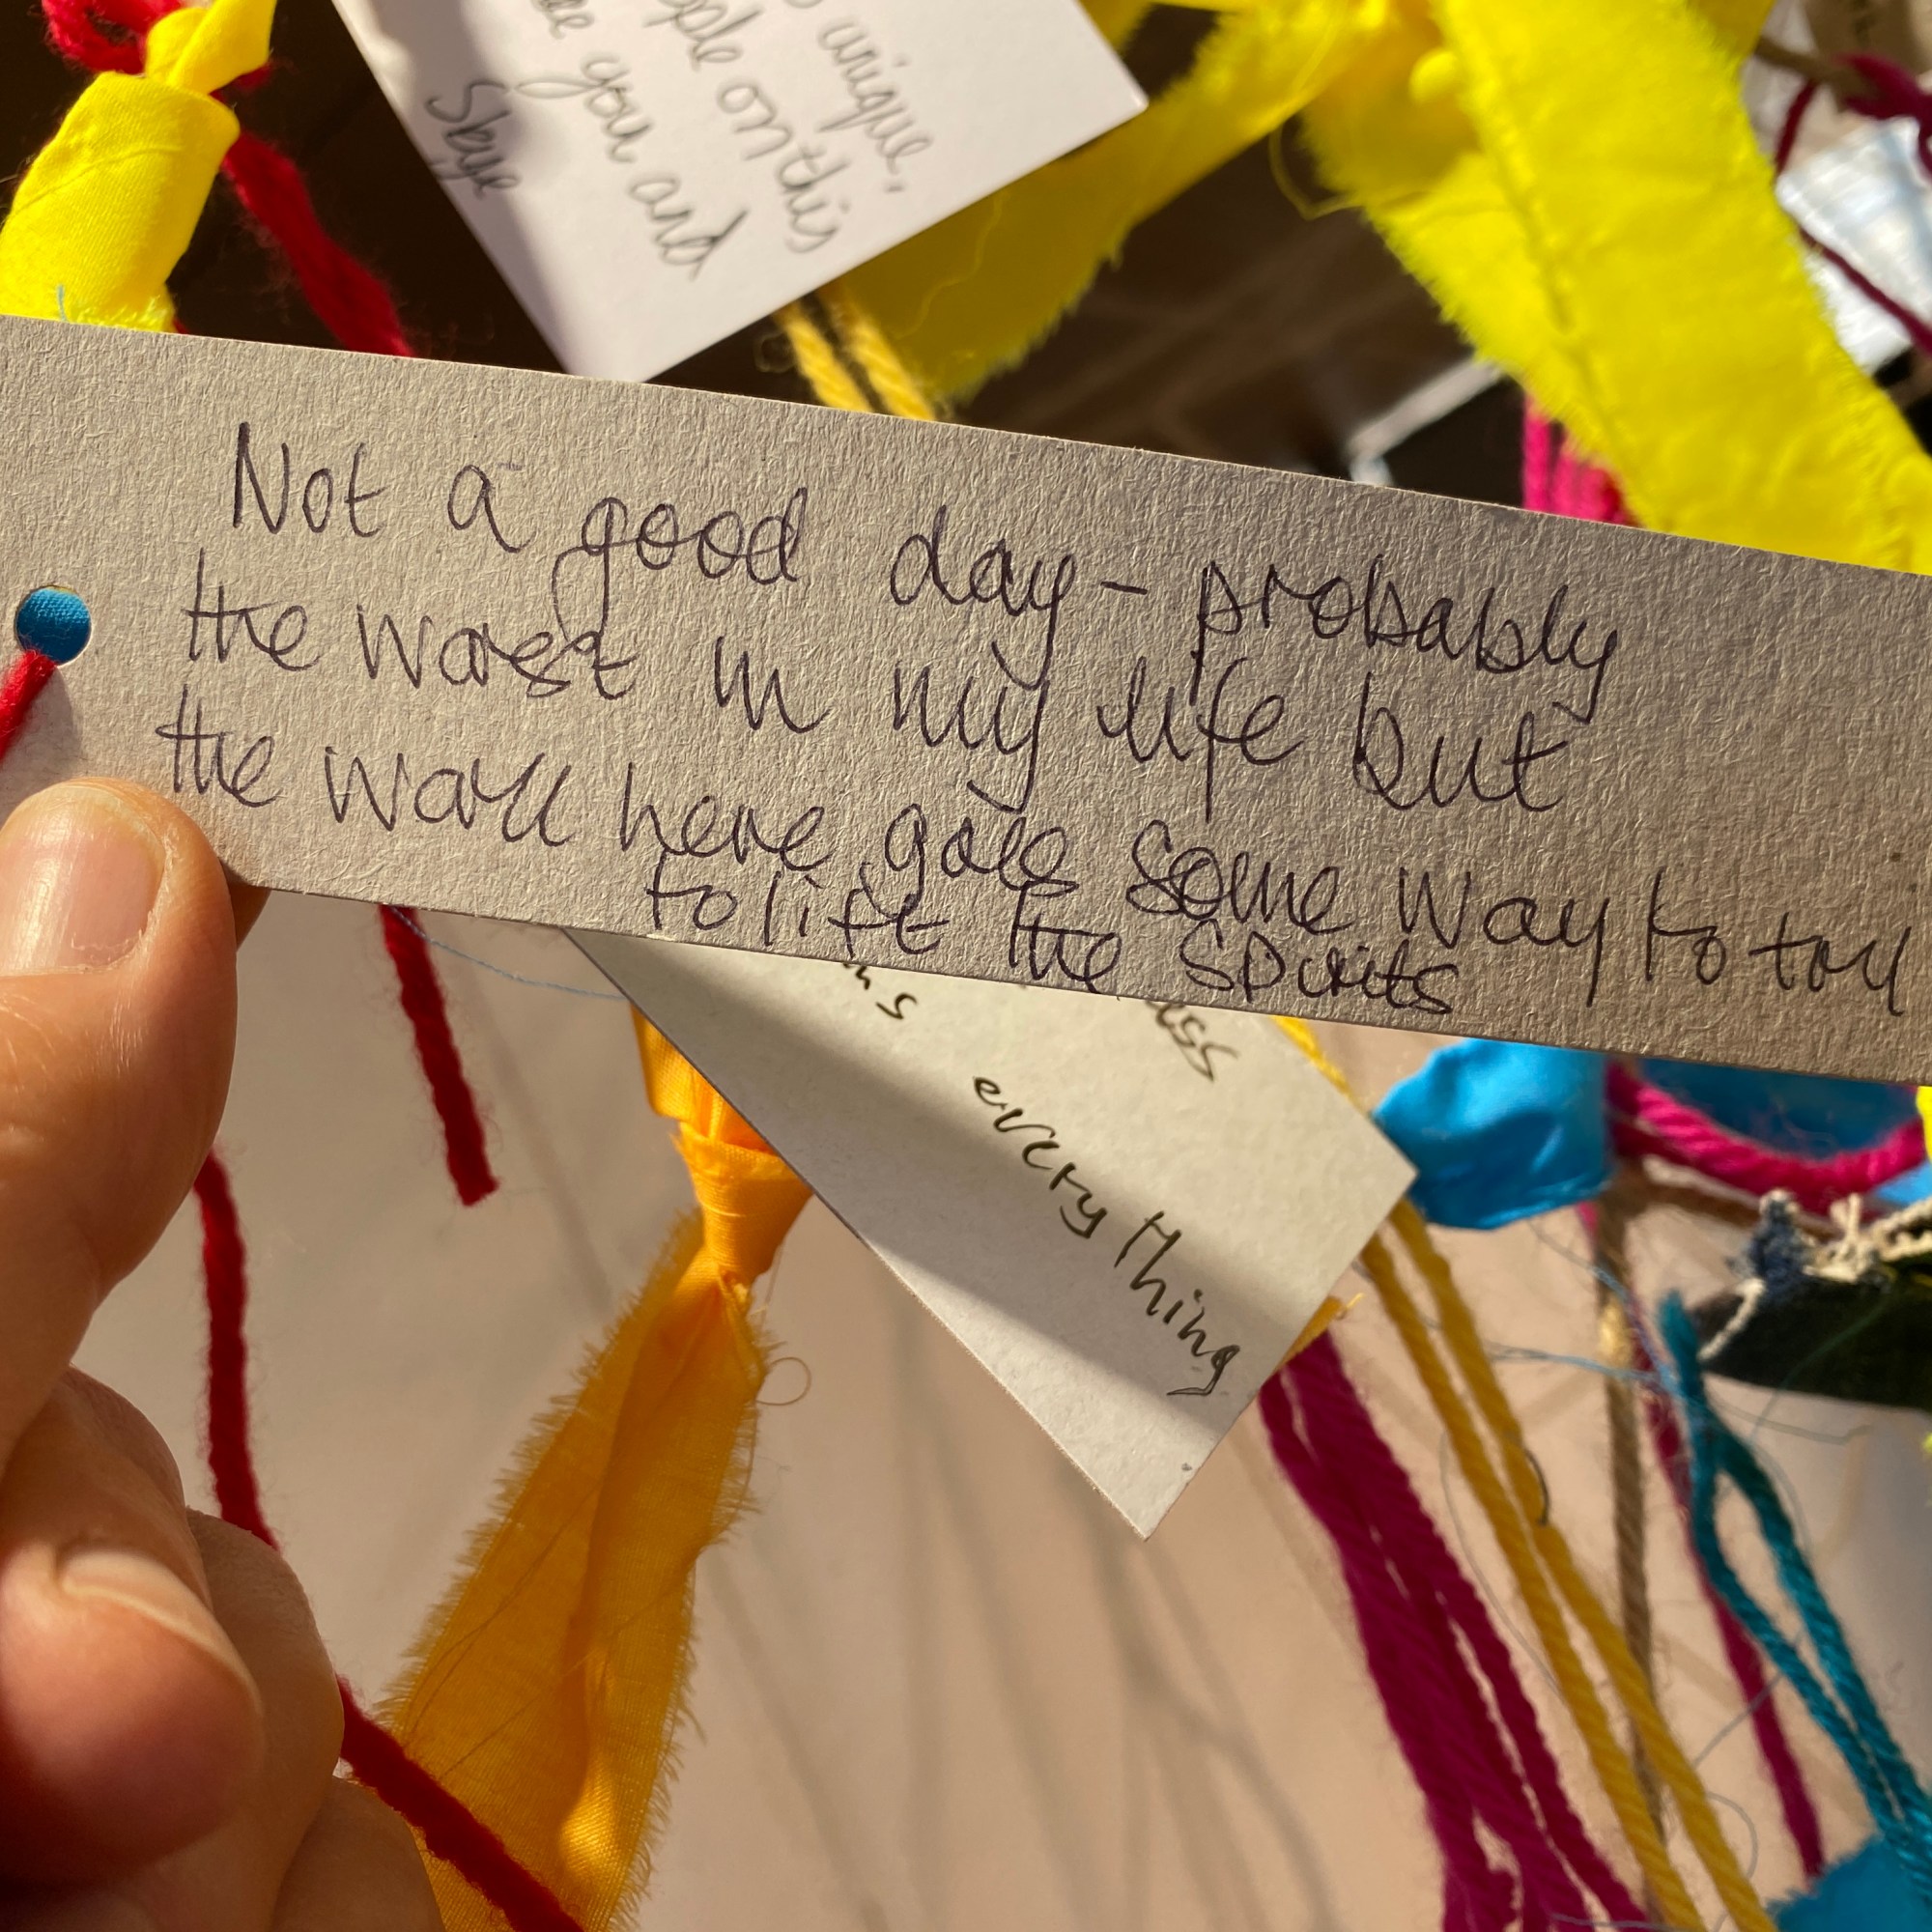 unique,
on this
you and
Skye
Not a good day - probably
the worst in my life but
the work here goes some way to try
to lift the spirits
everything